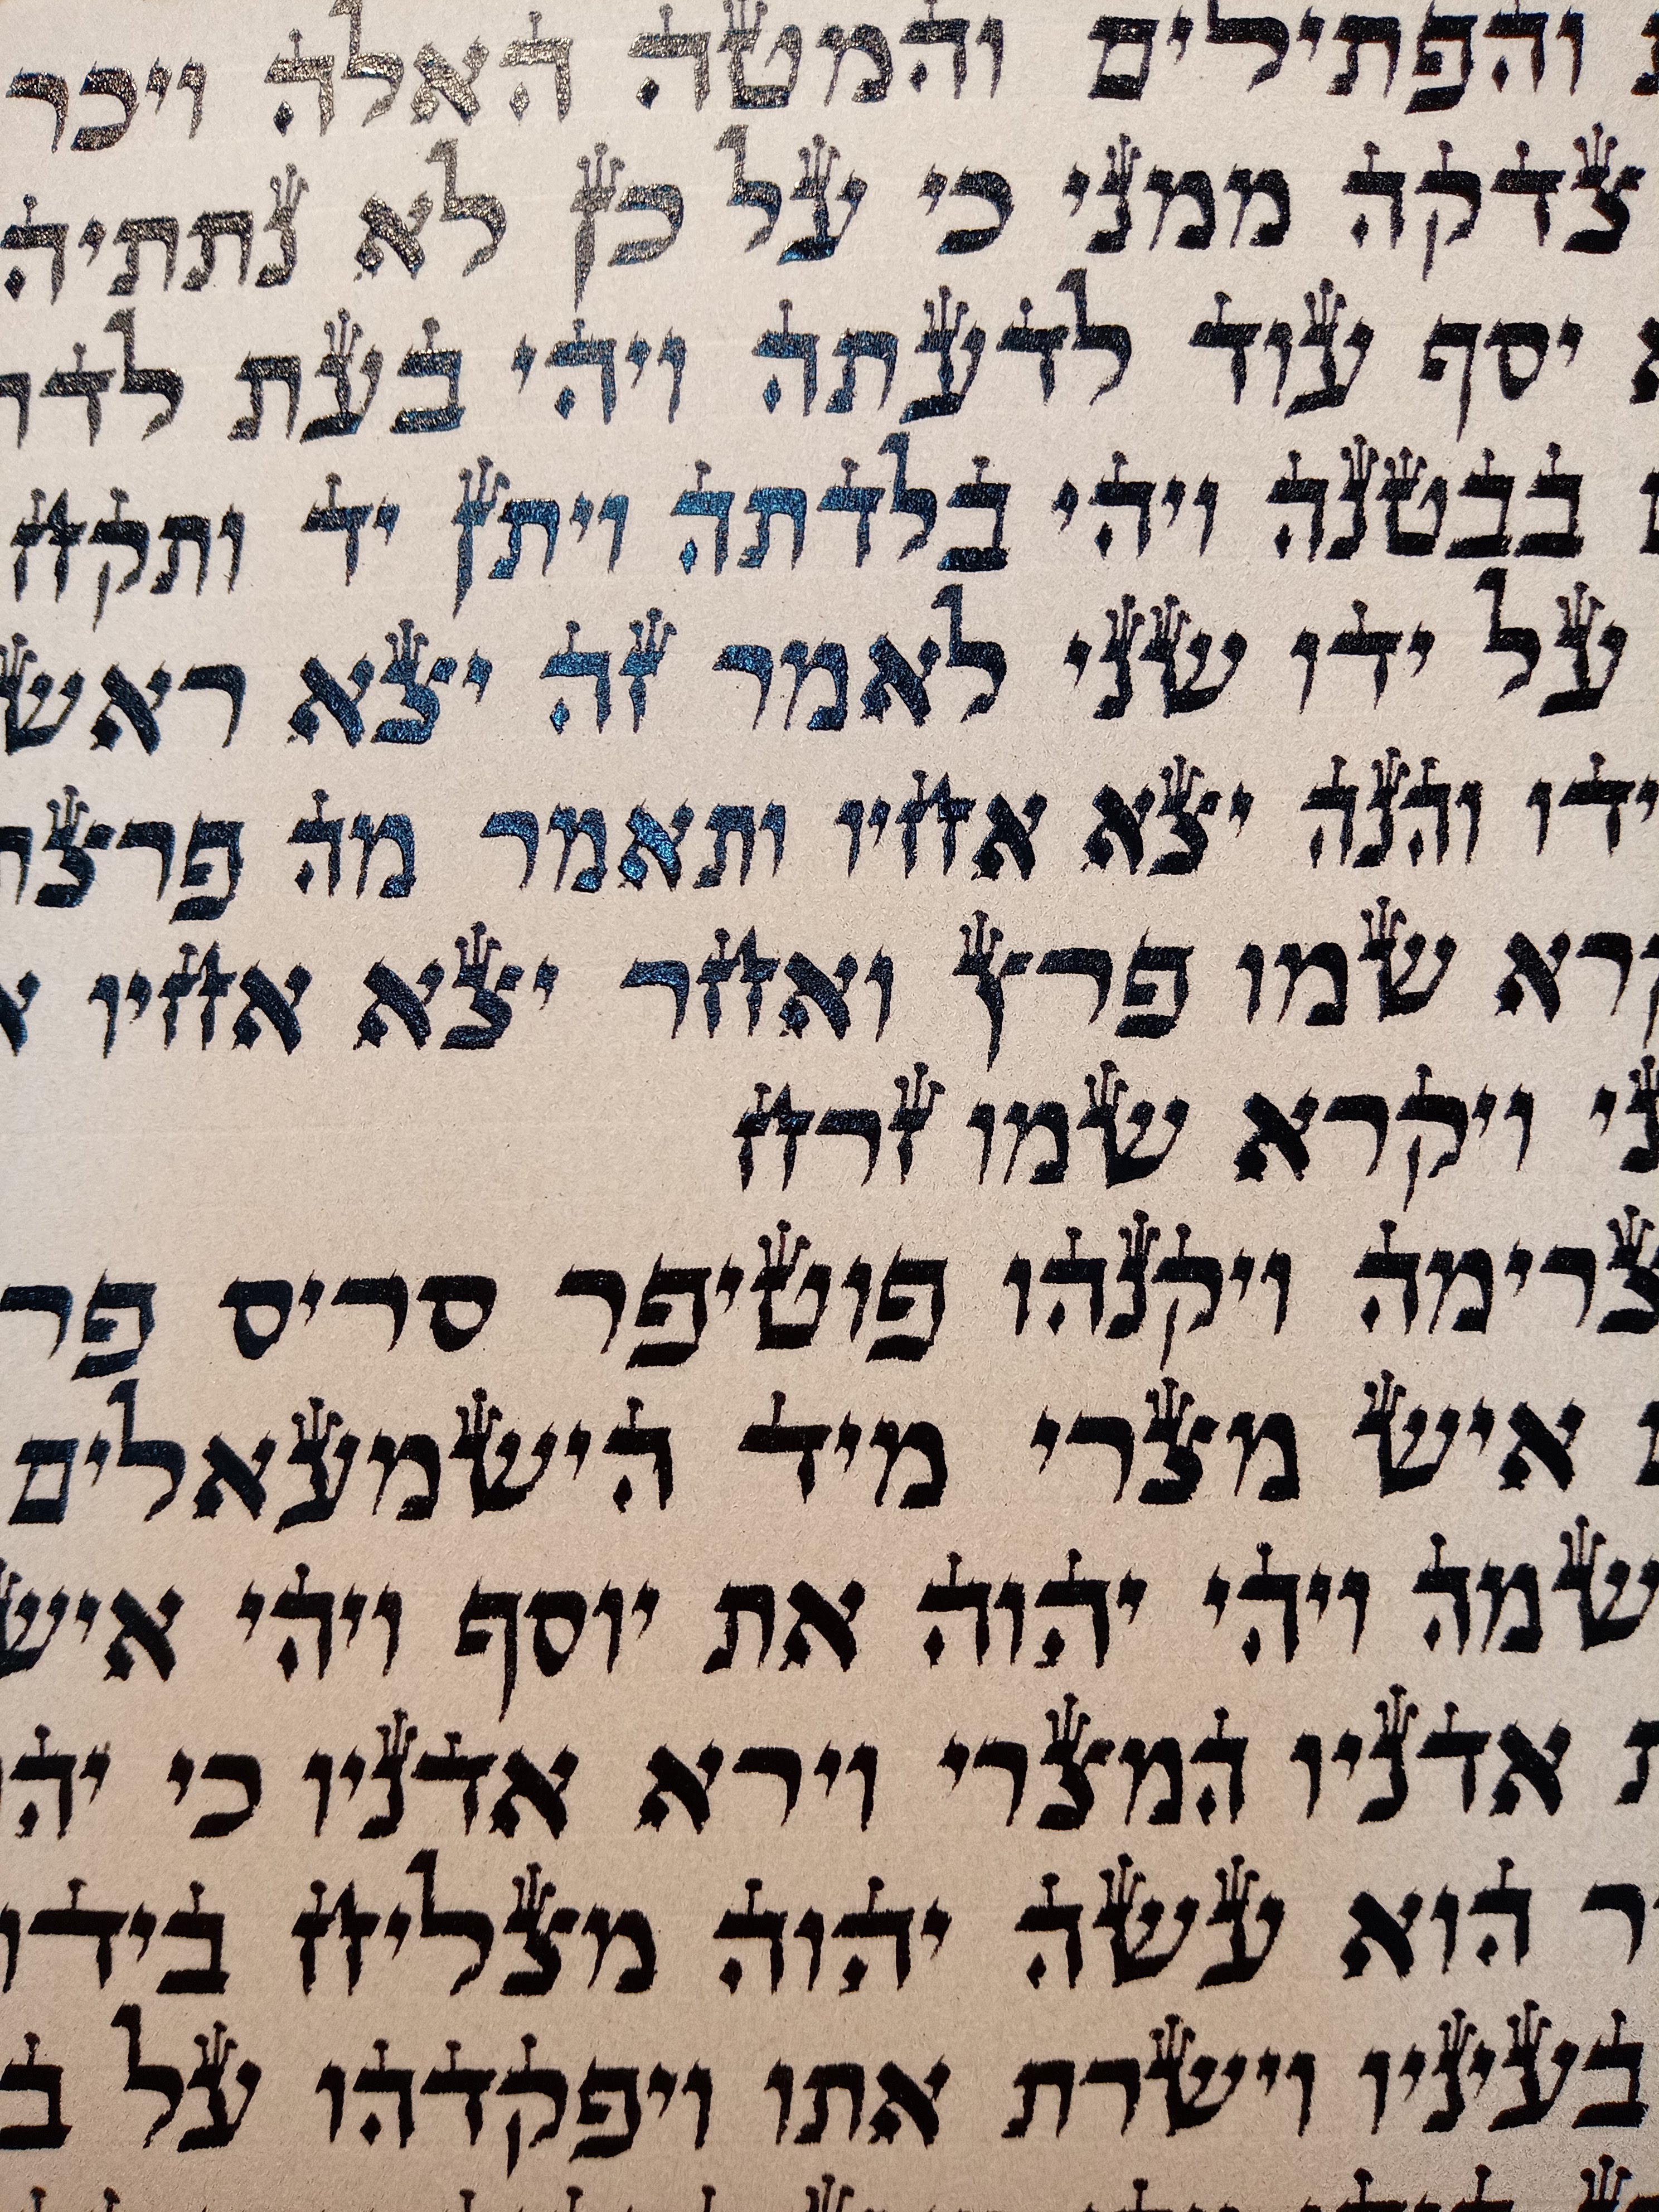 והפתילים והמטה האלה ויכר
צדקה ממני כי על כן לא נתתיה
א יסף עוד לדעתה ויהי בעת לדת
בבטנה ויהי בלדתה ויתן יד ותקח
על ידו שני לאמר זה יצא ראש
ידו והנה יצא אחיו ותאמר מה פרצת
קרא שמו פרץ ואחר יצא אחיו א
ני ויקרא שמו זרח
צרימה ויקנהו פוטיפר סריס פר
איש מצרי מיד הישמעאלים
שמה ויהי יהוה את יוסף ויהי איש
ת אדניו המצרי וירא אדניו כי יהו
ר הוא עשה יהוה מצליח בידו
בעיניו וישרת אתו ויפקדהו על ב